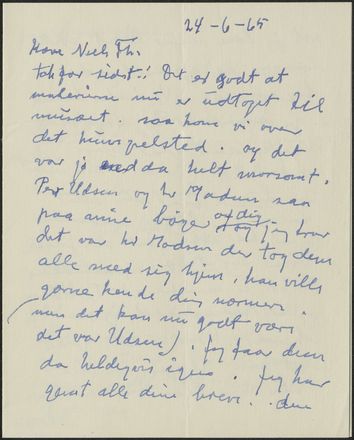 24-6-65
Kære Niels Th.
tak for sidst! Det er godt at
malerierne nu er udtaget til
museet. saa kom vi over
det hunspelsted. og det
var jo endda helt morsomt.
Per Udsen og hr Madsen saa
paa mine bøger af dig
det var hr Madsen der tog dem
alle med sig hjem, han vilde
gerne kende dig nærmere.
(men det kan nu godt være
det var Udsen). Jeg faar dem
da heldigvis igen. Jeg har
gemt alle dine breve. den